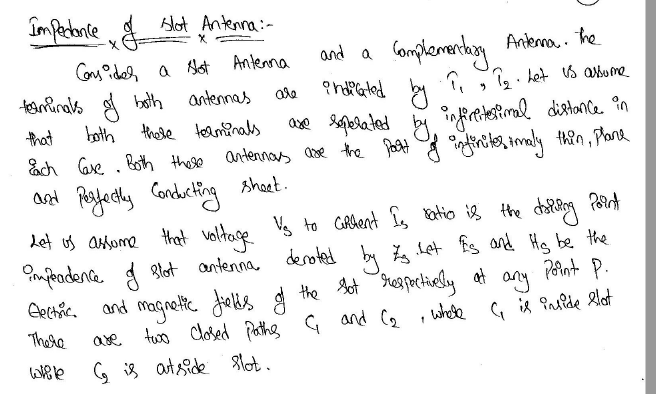 Impedance of slot Antenna:-
Consider a slot Antenna and a Complementary Antenna. The
terminals of both antennas are indicated by T1, T2. Let us assume
that both these terminals are seperated by infinitesimal distance in
Each Case. Both these antennas are the Part of infinitesimaly thin, Plane
and Perfectly Conducting sheet.
Let us assume that voltage Vs to current Is ratio is the driving Point
impeadence of slot antenna denoted by Zs. Let Es and Hs be the
Electric and magnetic fields of the slot respectively at any Point P.
There are two closed Paths C1 and C2, where C1 is inside slot
while C2 is outside slot.